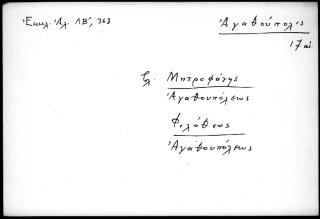 Ἐκκλ. Ἀλ. ΛΒ', 363
Ἀγαθούπολις
17 αἰ
Μητροφάνης
Ἀγαθουπόλεως
Φιλόθεος
Ἀγαθουπόλεως